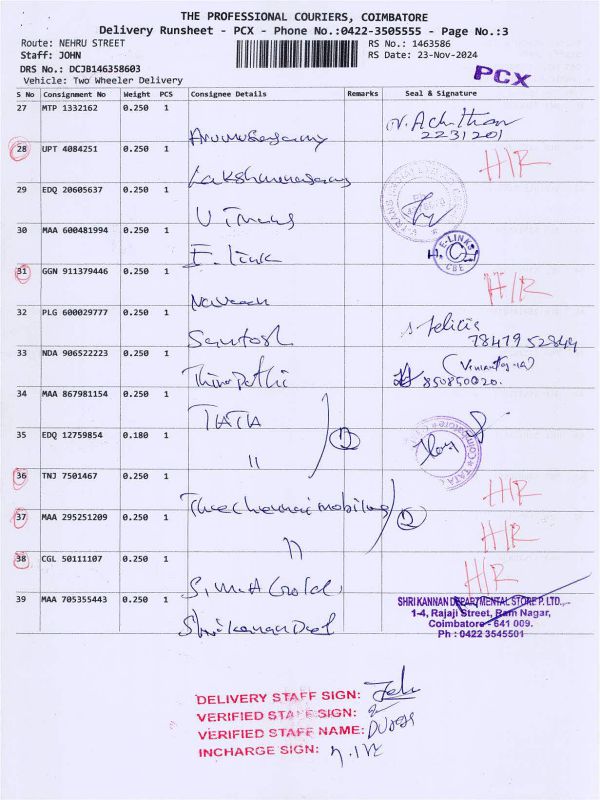 THE PROFESSIONAL COURIERS, COIMBATORE
Delivery Runsheet - PCX - Phone No.:0422-3505555 - Page No.:3
Route: NEHRU STREET RS No.: 1463586
Staff: JOHN RS Date: 23-Nov-2024
DRS No.: DCJB146358603
PCX
Vehicle: Two Wheeler Delivery
S No Consignment No Weight PCS Consignee Details Remarks Seal & Signature
27 MTP 1332162 0.250 1
28 UPT 4084251 0.250 1 H/R
29 EDQ 20605637 0.250 1
30 MAA 600481994 0.250 1 E. link E-LINKS CBE
31 GGN 911379446 0.250 1 Naveen H/R
32 PLG 600029777 0.250 1 Santosh 78479 52844
33 NDA 906522223 0.250 1
34 MAA 867981154 0.250 1 TATA
35 EDQ 12759854 0.180 1 "
36 TNJ 7501467 0.250 1 H/R
37 MAA 295251209 0.250 1 " H/R
38 CGL 50111107 0.250 1 H/R
39 MAA 705355443 0.250 1
SHRI KANNAN DEPARTMENTAL STORE P. LTD.,
1-4, Rajaji Street, Ram Nagar,
Coimbatore - 641 009.
Ph : 0422 3545501
DELIVERY STAFF SIGN:
VERIFIED STAFF SIGN:
VERIFIED STAFF NAME:
INCHARGE SIGN: